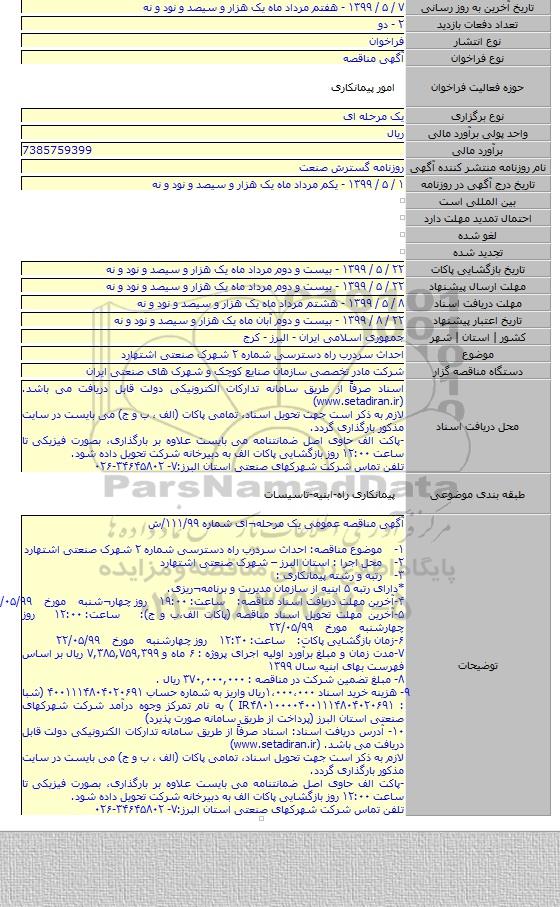 تاریخ آخرین به روز رسانی ۷ / ۵ / ۱۳۹۹ - هفتم مرداد ماه یک هزار و سیصد و نود و نه
تعداد دفعات بازدید ۲ - دو
نوع انتشار فراخوان
نوع فراخوان آگهی مناقصه
حوزه فعالیت فراخوان امور پیمانکاری
نوع برگزاری یک مرحله ای
واحد پولی برآورد مالی ریال
برآورد مالی 7385759399
نام روزنامه منتشر کننده آگهی روزنامه گسترش صنعت
تاریخ درج آگهی در روزنامه ۱ / ۵ / ۱۳۹۹ - یکم مرداد ماه یک هزار و سیصد و نود و نه
بین المللی است
احتمال تمدید مهلت دارد
لغو شده
تجدید شده
تاریخ بازگشایی پاکات ۲۲ / ۵ / ۱۳۹۹ - بیست و دوم مرداد ماه یک هزار و سیصد و نود و نه
مهلت ارسال پیشنهاد ۲۲ / ۵ / ۱۳۹۹ - بیست و دوم مرداد ماه یک هزار و سیصد و نود و نه
مهلت دریافت اسناد ۸ / ۵ / ۱۳۹۹ - هشتم مرداد ماه یک هزار و سیصد و نود و نه
تاریخ اعتبار پیشنهاد ۲۲ / ۸ / ۱۳۹۹ - بیست و دوم آبان ماه یک هزار و سیصد و نود و نه
کشور | استان | شهر جمهوری اسلامی ایران - البرز - کرج
موضوع احداث سردرب راه دسترسی شماره ۲ شهرک صنعتی اشتهارد
دستگاه مناقصه گزار شرکت مادر تخصصی سازمان صنایع کوچک و شهرک های صنعتی ایران
محل دریافت اسناد
اسناد صرفاً از طریق سامانه تدارکات الکترونیکی دولت قابل دریافت می باشد. (www.setadiran.ir)
لازم به ذکر است جهت تحویل اسناد، تمامی پاکات (الف ، ب و ج) می بایست در سایت مذکور بارگذاری گردد.
-پاکت الف حاوی اصل ضمانتنامه می بایست علاوه بر بارگذاری، بصورت فیزیکی تا ساعت ۱۲:۰۰ روز بازگشایی پاکات الف به دبیرخانه شرکت تحویل داده شود.
تلفن تماس شرکت شهرکهای صنعتی استان البرز:۷- ۳۴۶۴۵۸۰۲-۰۲۶
ParsNamadData
طبقه بندی موضوعی پیمانکاری راه-ابنیه-تاسیسات
مرکز فرآوری اطلاعات پارس نماد داده ها
پایگاه اطلاع رسانی مناقصه ومزایده
توضیحات
آگهی مناقصه عمومی یک مرحله¬ای شماره ۱۱۱/۹۹/ش
۱- موضوع مناقصه: احداث سردرب راه دسترسی شماره ۲ شهرک صنعتی اشتهارد
۲- محل اجرا : استان البرز – شهرک صنعتی اشتهارد
۳- رتبه و رشته پیمانکاری :
*دارای رتبه ۵ ابنیه از سازمان مدیریت و برنامه¬ریزی.
۴-آخرین مهلت دریافت اسناد مناقصه: ساعت: ۱۹:۰۰ روز چهار¬شنبه مورخ ۰۵/۹۹/
۵-آخرین مهلت تحویل اسناد مناقصه (پاکات الف،ب و ج): ساعت: ۱۲:۰۰ روز چهارشنبه مورخ ۲۲/۰۵/۹۹
۶-زمان بازگشایی پاکات: ساعت: ۱۲:۳۰ روز چهارشنبه مورخ ۲۲/۰۵/۹۹
۷-مدت زمان و مبلغ برآورد اولیه اجرای پروژه : ۶ ماه و ۷,۳۸۵,۷۵۹,۳۹۹ ریال بر اساس فهرست بهای ابنیه سال ۱۳۹۹
۸- مبلغ تضمین شرکت در مناقصه : ۳۷۰,۰۰۰,۰۰۰ ریال .
۹- هزینه خرید اسناد ۱،۰۰۰،۰۰۰ریال واریز به شماره حساب ۴۰۰۱۱۱۴۸۰۴۰۲۰۶۹۱ (شبا : IR۴۸۰۱۰۰۰۰۴۰۰۱۱۱۴۸۰۴۰۲۰۶۹۱ ) به نام تمرکز وجوه درآمد شرکت شهرکهای صنعتی استان البرز (پرداخت از طریق سامانه صورت پذیرد)
۱۰- آدرس دریافت اسناد: اسناد صرفاً از طریق سامانه تدارکات الکترونیکی دولت قابل دریافت می باشد. (www.setadiran.ir)
لازم به ذکر است جهت تحویل اسناد، تمامی پاکات (الف ، ب و ج) می بایست در سایت مذکور بارگذاری گردد.
-پاکت الف حاوی اصل ضمانتنامه می بایست علاوه بر بارگذاری، بصورت فیزیکی تا ساعت ۱۲:۰۰ روز بازگشایی پاکات الف به دبیرخانه شرکت تحویل داده شود.
تلفن تماس شرکت شهرکهای صنعتی استان البرز:۷- ۳۴۶۴۵۸۰۲-۰۲۶